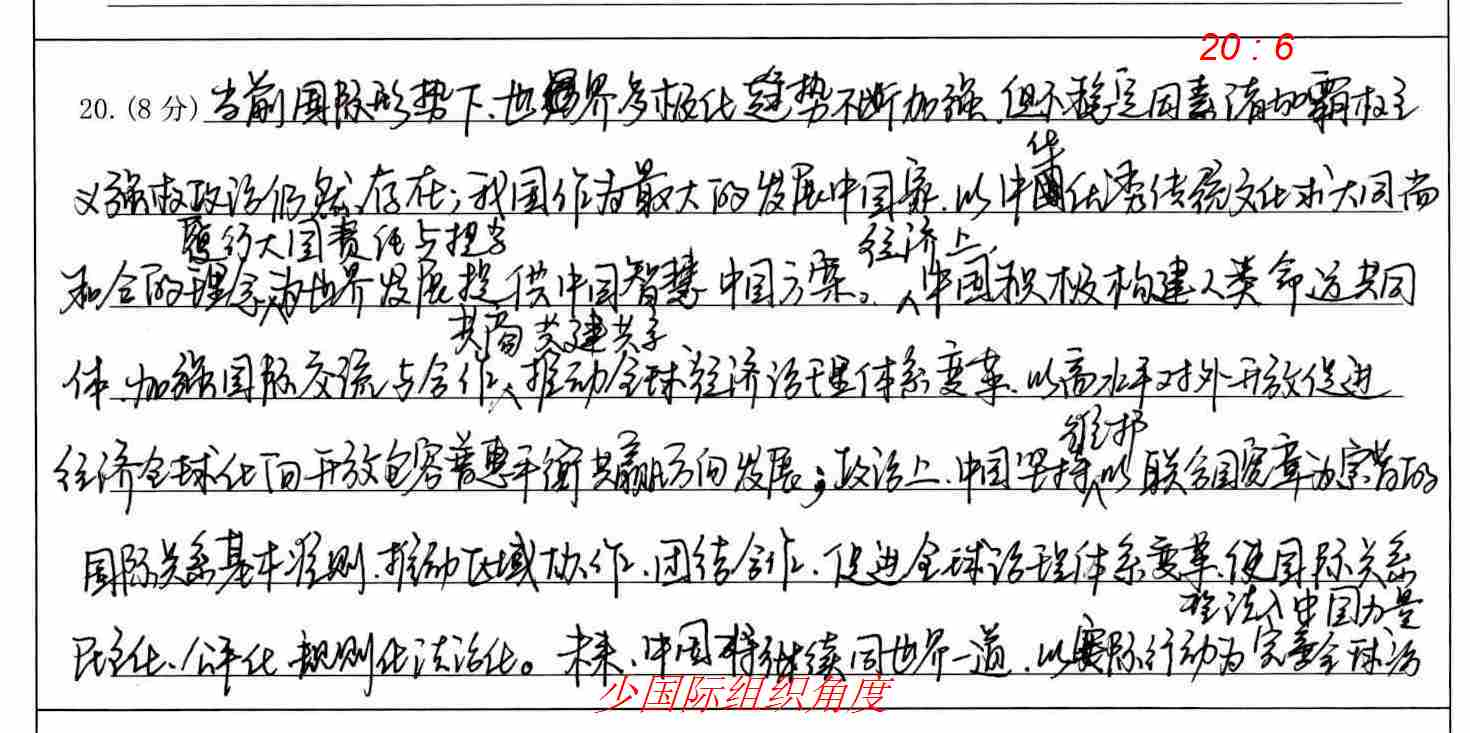 20:6
20.(8分)当前国际形势下、世界多极化趋势不断加强,但不稳定因素增加霸权主
义强权政治仍然存在;我国作为最大的发展中国家,以中华优秀传统文化求大同尚
履行大国责任与担当
经济上,
和合的理念,为世界发展提供中国智慧 中国方案。中国积极构建人类命运共同
共商共建共享
体,加强国际交流与合作,推动全球经济治理体系变革,以高水平对外开放促进
经济全球化向开放包容普惠平衡共赢方向发展;政治上,中国坚持以联合国宪章为宗旨的
维护
国际关系基本准则,推动区域协作、团结合作、促进全球治理体系变革,使国际关系
民主化、公平化 规则化法治化。未来,中国将继续同世界一道,以实际行动为完善全球治
注入中国力量
少国际组织角度